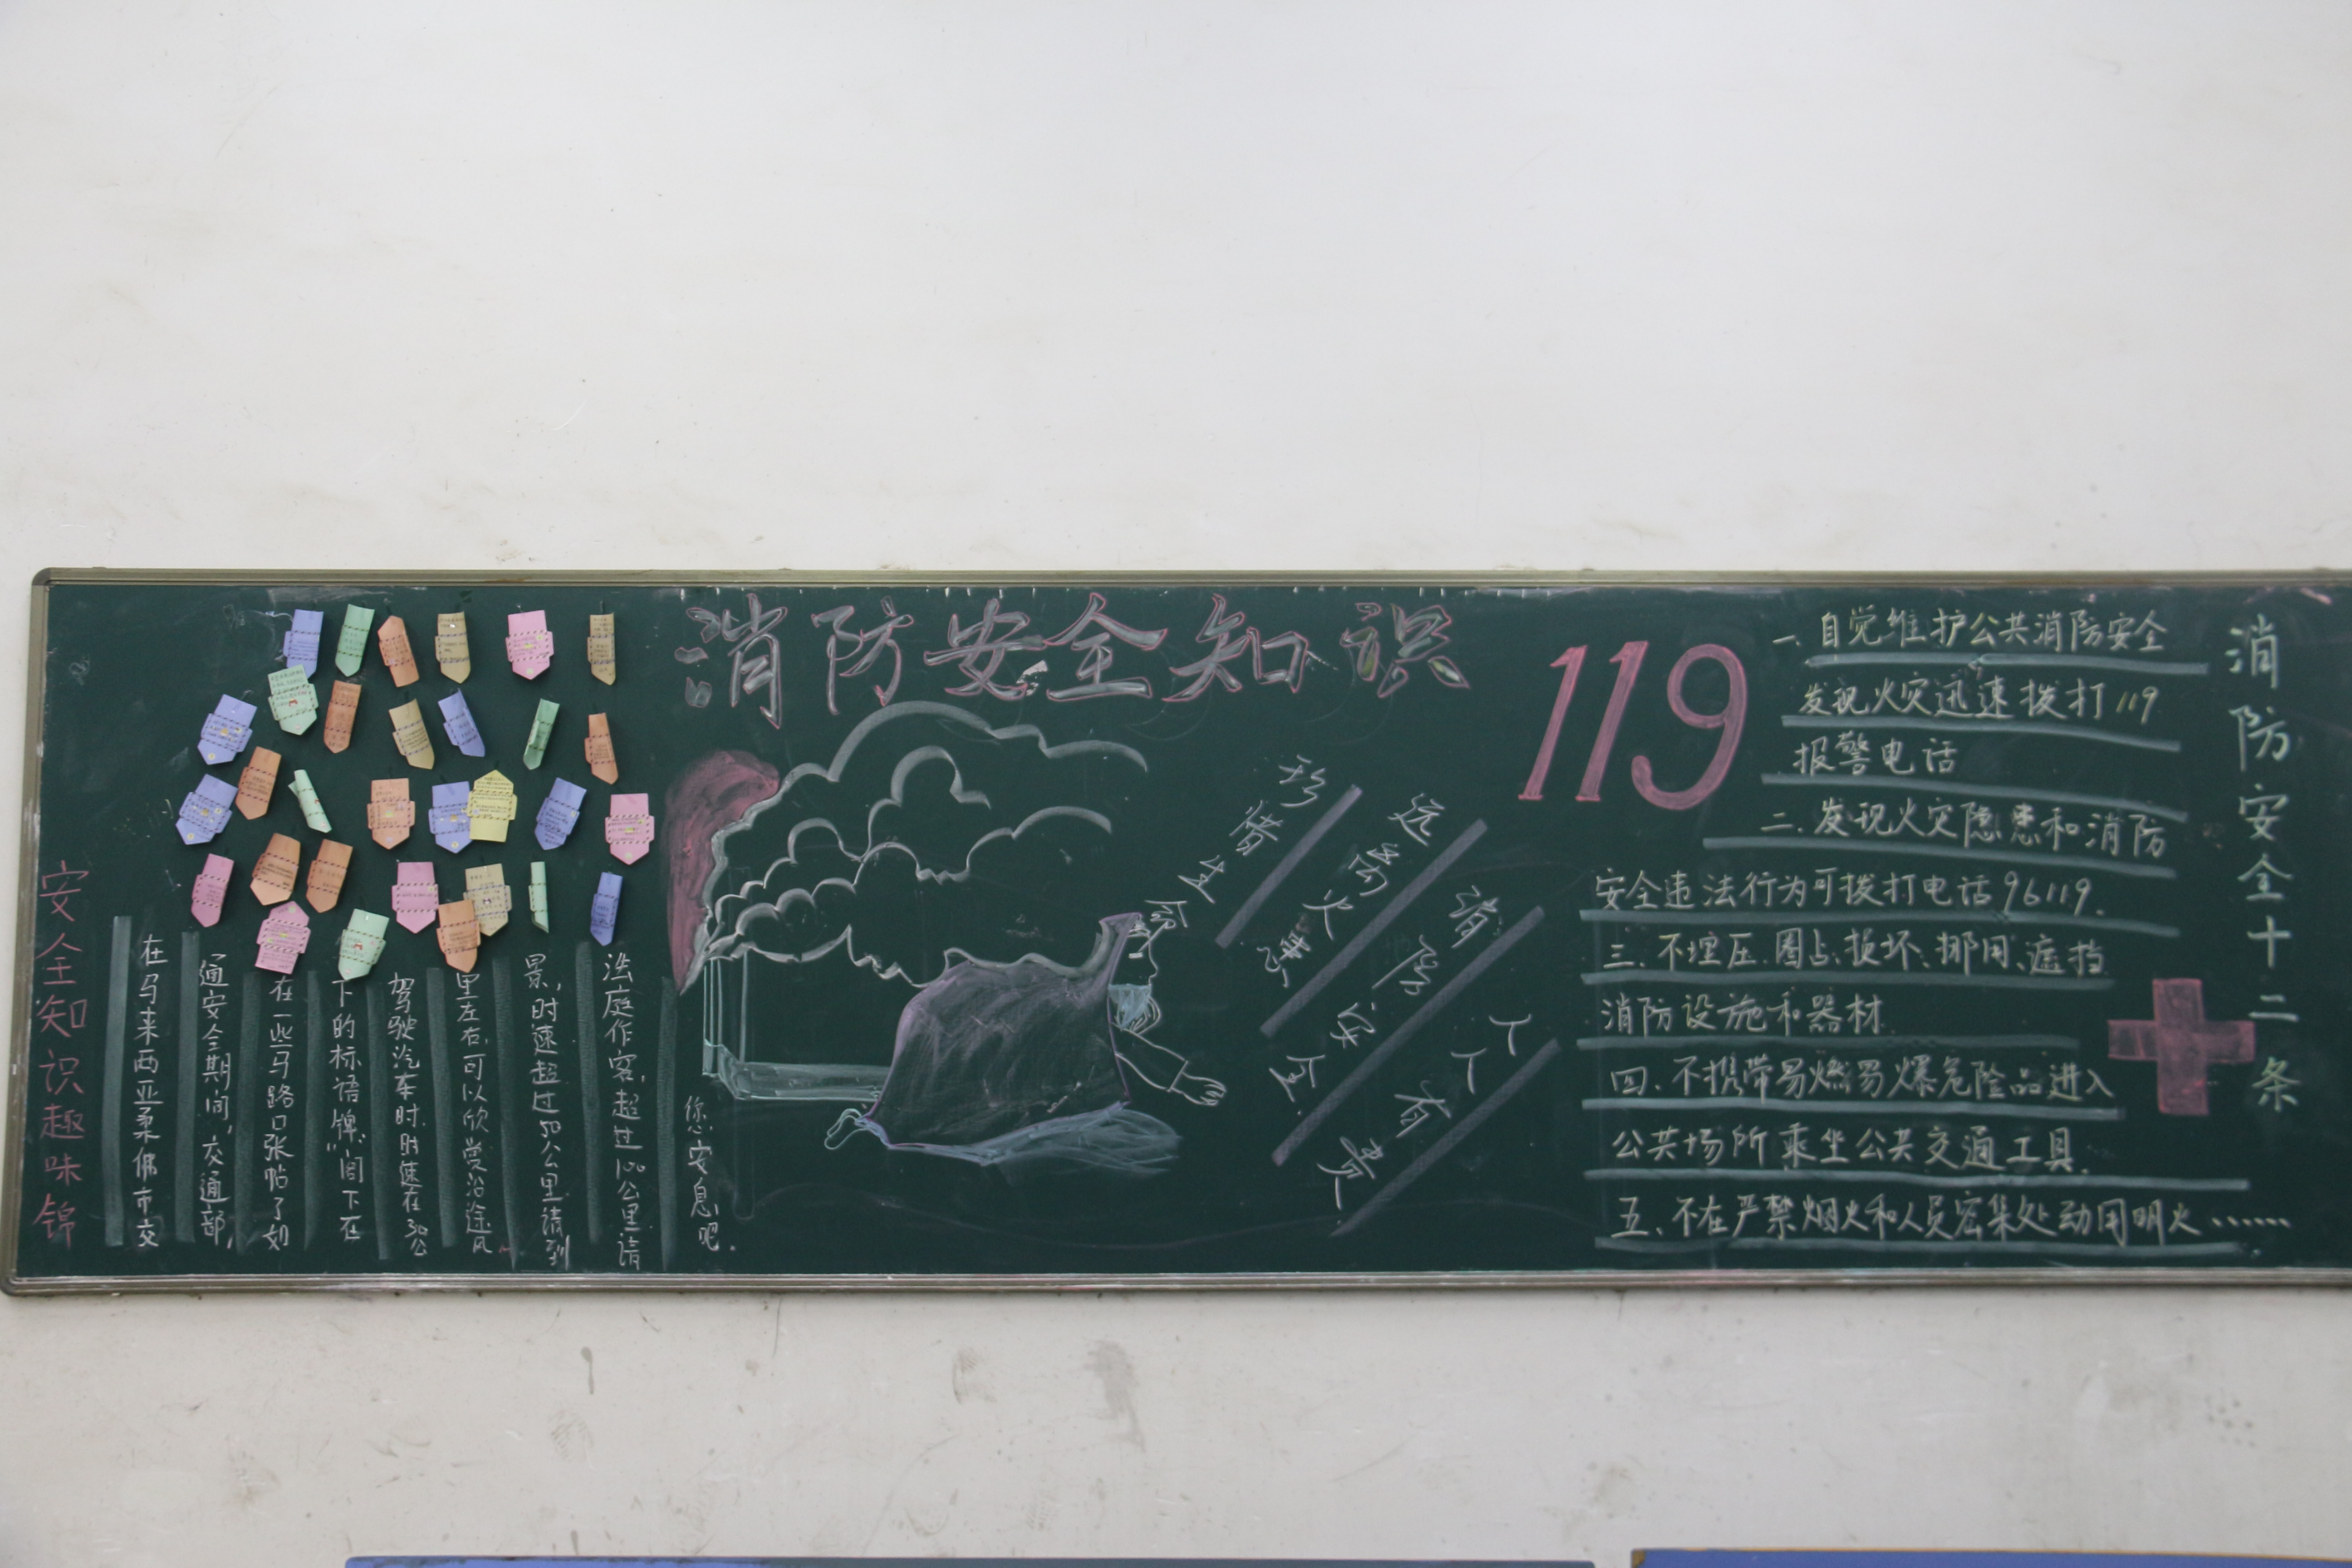 消防安全知识
安全知识趣味锦
在马来西亚柔佛市交
通安全期间，交通部，
在一些马路口张帖了如
下的标语牌“阁下在
驾驶汽车时.时速在30公
里左右,可以欣赏沿途风
景，时速超过50公里请到
法庭作客，超过100公里请
您安息吧.
珍惜生命
远离火患
消除
人人有责
119
消防安全十二条
一.自觉维护公共消防安全
发现火灾迅速拨打119
报警电话
二.发现火灾隐患和消防
安全违法行为可拨打电话96119.
三.不埋压.圈占.损坏、挪用、遮挡
消防设施和器材
四.不携带易燃易爆危险品进入
公共场所乘坐公共交通工具.
五.不在严禁烟火和人员密集处动用明火……